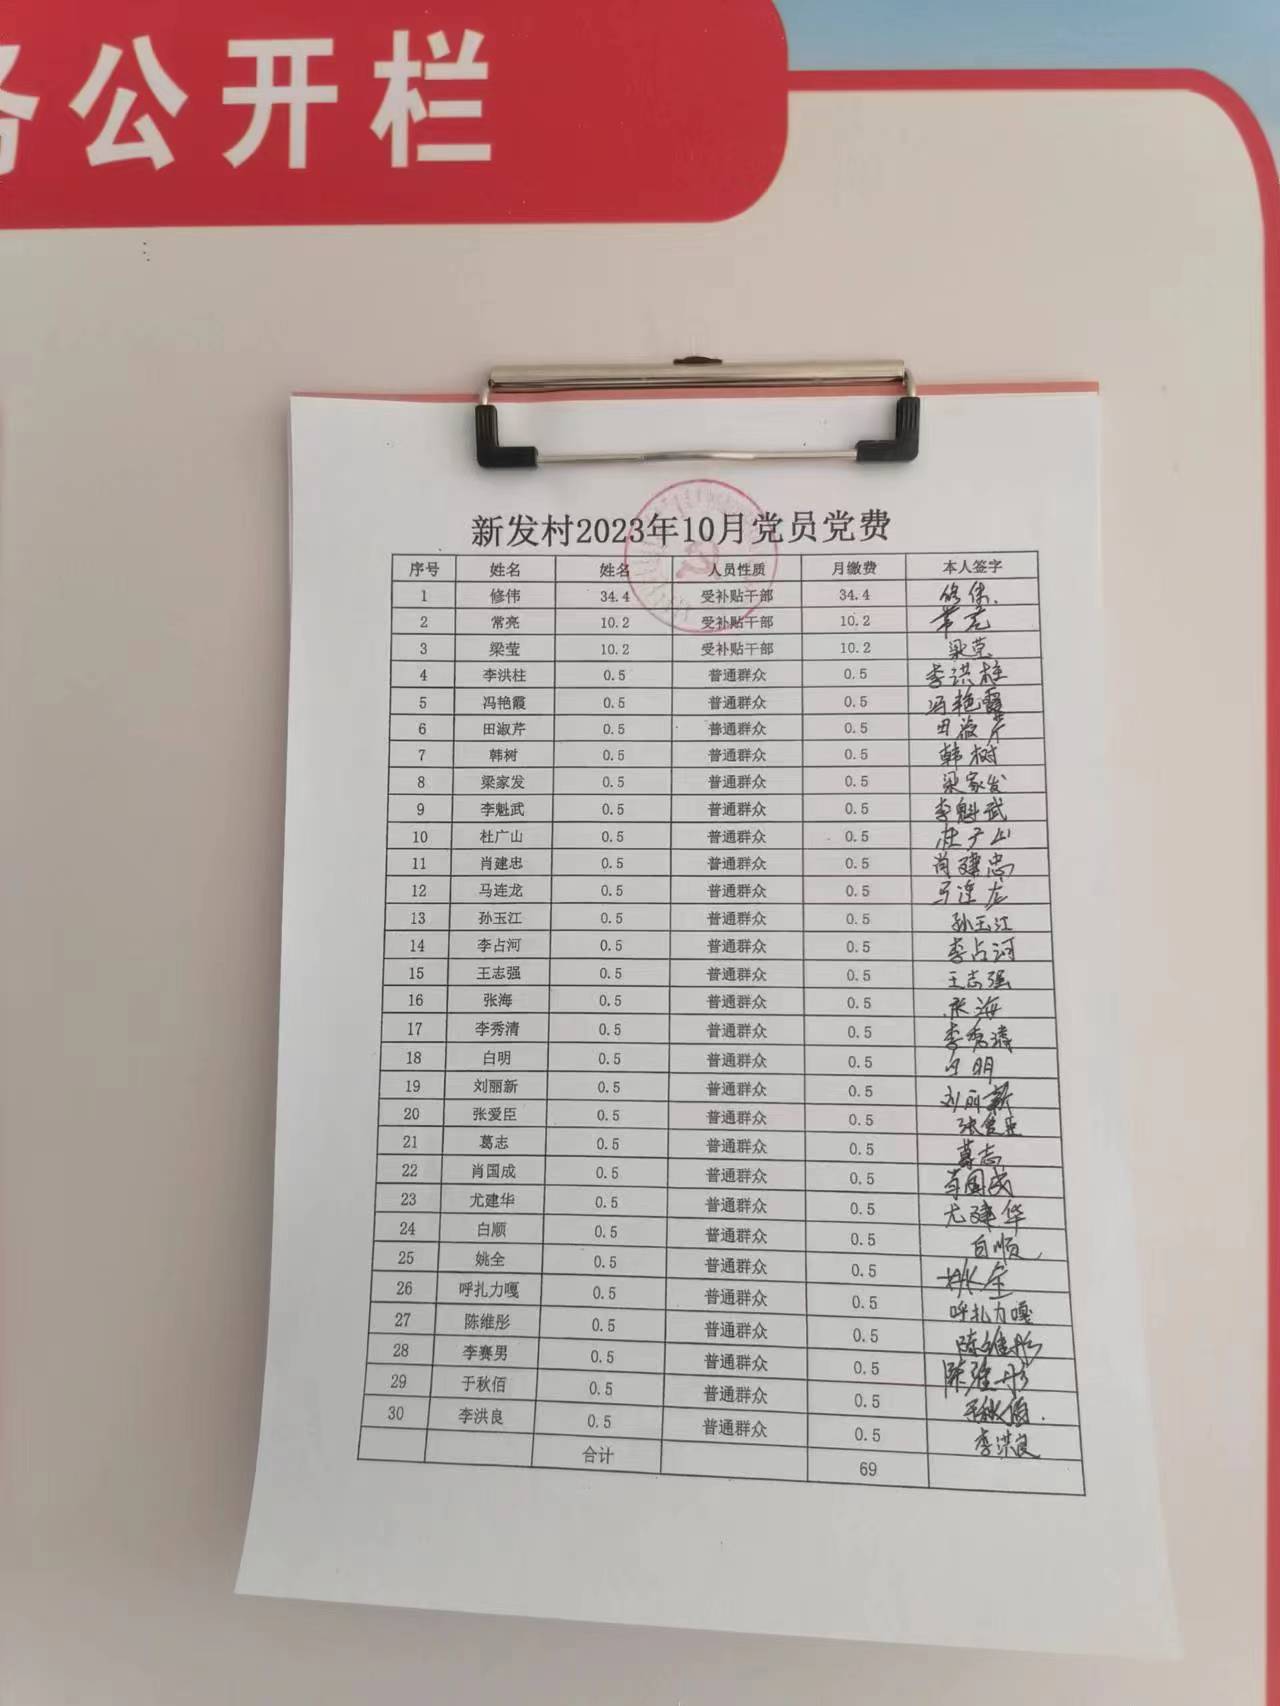 务公开栏
新发村2023年10月党员党费
序号 姓名 姓名 人员性质 月缴费 本人签字
1 修伟 34.4 受补贴干部 34.4 修伟.
2 常亮 10.2 受补贴干部 10.2 常亮
3 梁莹 10.2 受补贴干部 10.2 梁莹
4 李洪柱 0.5 普通群众 0.5 李洪柱
5 冯艳霞 0.5 普通群众 0.5 冯艳霞
6 田淑芹 0.5 普通群众 0.5 田淑芹
7 韩树 0.5 普通群众 0.5 韩树
8 梁家发 0.5 普通群众 0.5 梁家发
9 李魁武 0.5 普通群众 0.5 李魁武
10 杜广山 0.5 普通群众 0.5 杜广山
11 肖建忠 0.5 普通群众 0.5 肖建忠
12 马连龙 0.5 普通群众 0.5 马连龙
13 孙玉江 0.5 普通群众 0.5 孙玉江
14 李占河 0.5 普通群众 0.5 李占河
15 王志强 0.5 普通群众 0.5 王志强
16 张海 0.5 普通群众 0.5 张海
17 李秀清 0.5 普通群众 0.5 李秀清
18 白明 0.5 普通群众 0.5 白明
19 刘丽新 0.5 普通群众 0.5 刘丽新
20 张爱臣 0.5 普通群众 0.5
21 葛志 0.5 普通群众 0.5 葛志
22 肖国成 0.5 普通群众 0.5 肖国成
23 尤建华 0.5 普通群众 0.5 尤建华
24 白顺 0.5 普通群众 0.5 白顺
25 姚全 0.5 普通群众 0.5 姚全
26 呼扎力嘎 0.5 普通群众 0.5 呼扎力嘎
27 陈维彤 0.5 普通群众 0.5 陈维彤
28 李赛男 0.5 普通群众 0.5 陈维彤
29 于秋佰 0.5 普通群众 0.5 于秋佰.
30 李洪良 0.5 普通群众 0.5 李洪良
合计 69